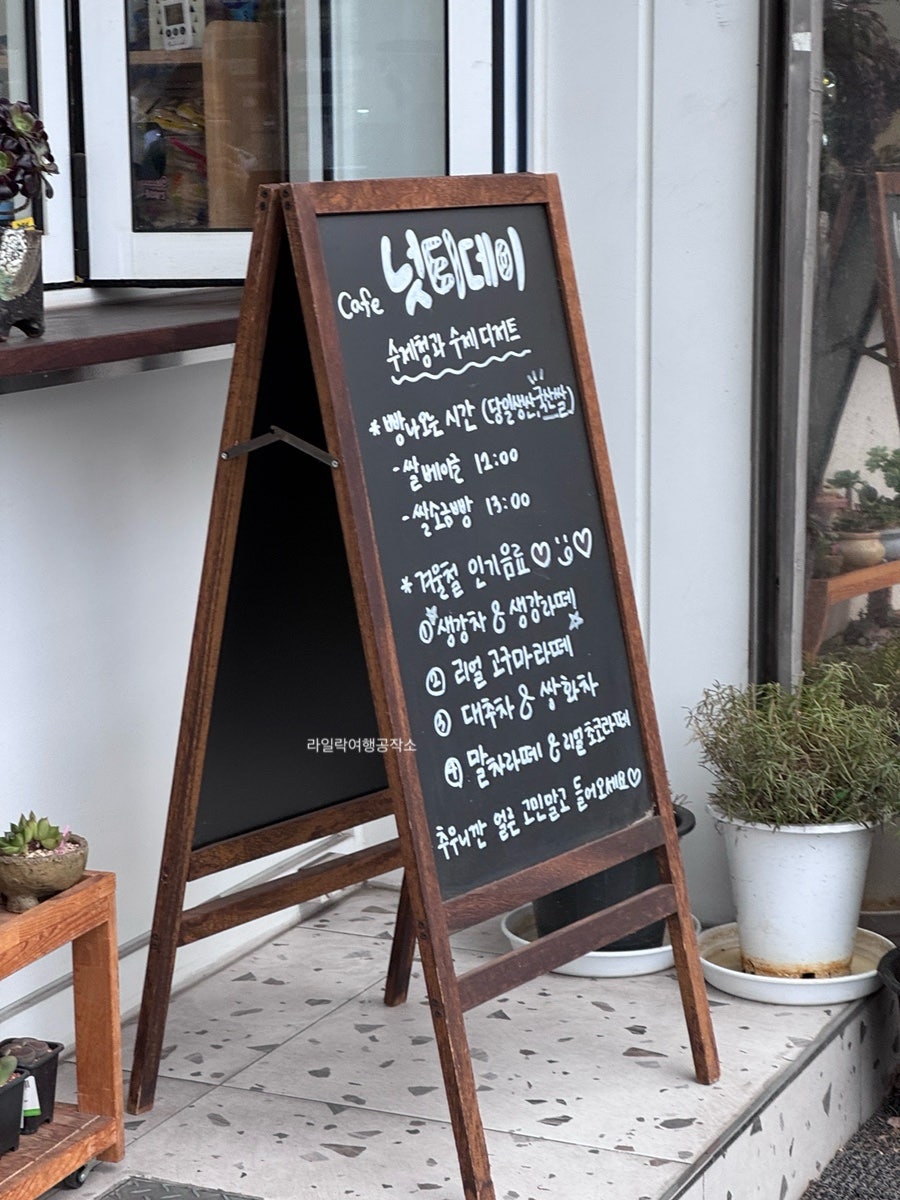 Cafe 넛티데이
수제청과 수제 디저트
* 빵나오는 시간 (당일생산, 국산쌀)
- 쌀베이글 12:00
- 쌀소금빵 13:00
* 겨울철 인기음료♡ ♡
① 생강차 & 생강라떼
② 리얼 고구마라떼
③ 대추차 & 쌍화차
④ 말차라떼 & 리얼초코라떼
추우니깐 얼른 고민말고 들어오세요♡
라일락여행공작소